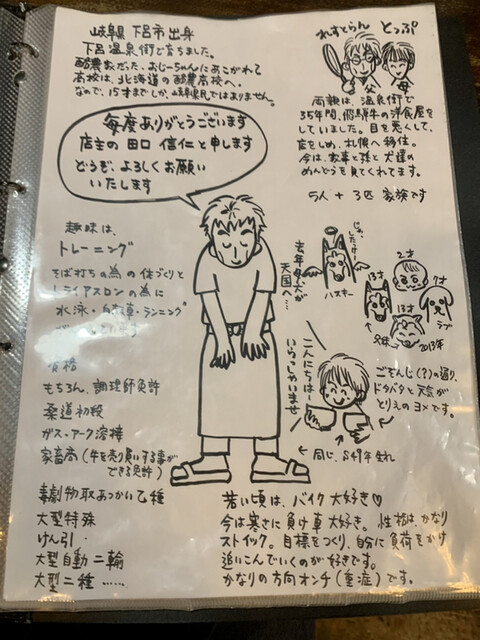 岐阜県 下呂市出身
下呂温泉街で育ちました。
酪農家だった、おじーちゃんにあこがれて
高校は、北海道の酪農高校へ。
なので、15才までしか、岐阜県民ではありません。
れすとらん とっぷ
父
母
両親は、温泉街で
35年間、飛騨牛の洋食屋を
していました。目を悪くして、
店をしめ、札幌へ移住。
今は、家事と孫と犬達の
めんどうを見てくれてます。
5人 + 3匹 家族です
毎度ありがとうございます
店主の 田口 信仁と申します
どうぞ、よろしくお願い
いたします
趣味は、
トレーニング
そば打ちの為の体づくりと
トライアスロンの為に
水泳・自転車・ランニング
資格
もちろん、調理師免許
柔道初段
ガス・アーク溶接
家畜商(牛を売り買いする事が
できる免許)
毒劇物取あつかい乙種
大型特殊
けん引・
大型自動二輪
大型二種 ……
去年
天国へ…
じゃ、したっけ
ハスキー
2才
13才
13才
7才
ラブ
2013年
こんにちはー
いらっしゃいませ
ごぞんじ(?)の通り、
ドタバタと天気が
とりえのヨメです。
← 同じ、S49年生れ
若い頃は、バイク大好き♡
今は寒さに負け車大好き。性格は、かなり
ストイック。目標をつくり、自分に負荷をかけ
追いこんでいくのが好きです。
かなりの方向オンチ(重症)です。